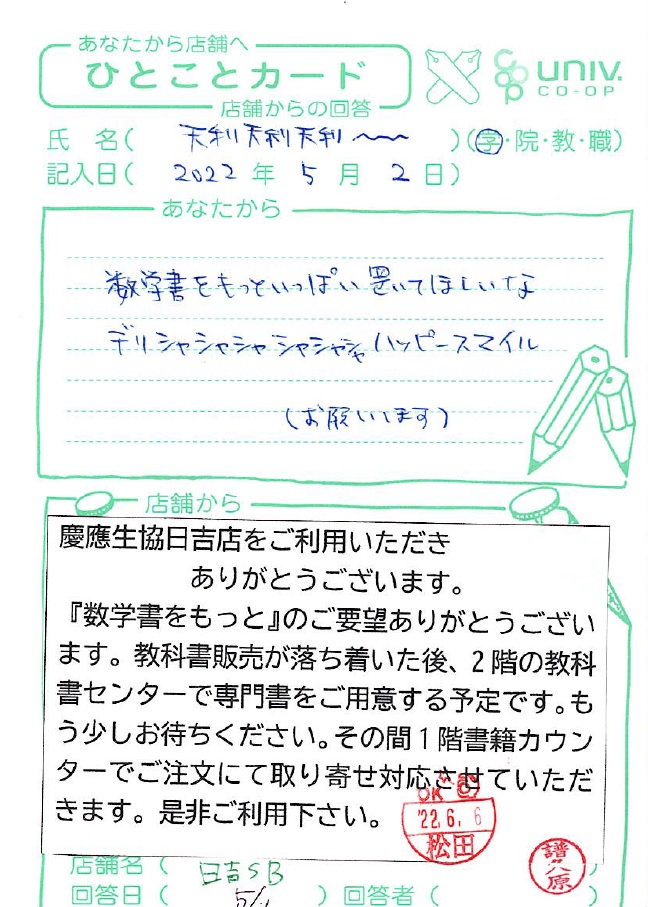 あなたから店舗へ
ひとことカード
店舗からの回答
univ.
CO-OP
coop
氏 名( 天利天利天利〜〜 )(学・院・教・職)
記入日( 2022 年 5 月 2 日)
あなたから
数学書をもっといっぱい置いてほしいな
デリシャシャシャシャシャシャハッピースマイル
(お願いします)
店舗から
慶應生協日吉店をご利用いただき
ありがとうございます。
『数学書をもっと』のご要望ありがとうござい
ます。教科書販売が落ち着いた後、2階の教科
書センターで専門書をご用意する予定です。も
う少しお待ちください。その間1階書籍カウン
ターでご注文にて取り寄せ対応させていただ
きます。是非ご利用下さい。
OK
'22.6.6
松田
店舗名( 日吉SB )
回答日( 5/ ) 回答者(